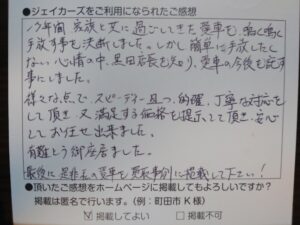 ●ジェイカーズをご利用になられたご感想
年間 家族と共に過ごしてきた愛車を 泣く泣く
手放す事を決断しました。しかし簡単に手放したく
ない心情の中、 店長を知り、愛車の今後を託す
事にしました。
様々な点で スピーディー 且つ、的確、丁寧な対応を
して頂き 又 満足する価格を提示して頂き、安心
してお任せ出来ました。
有難とう御座居ました。
最後に 是非 私の愛車を 買取事例に掲載して下さい!
●頂いたご感想をホームページに掲載してもよろしいですか?
掲載は匿名で行います。(例:町田市 K様)
☑ 掲載してよい □ 掲載不可